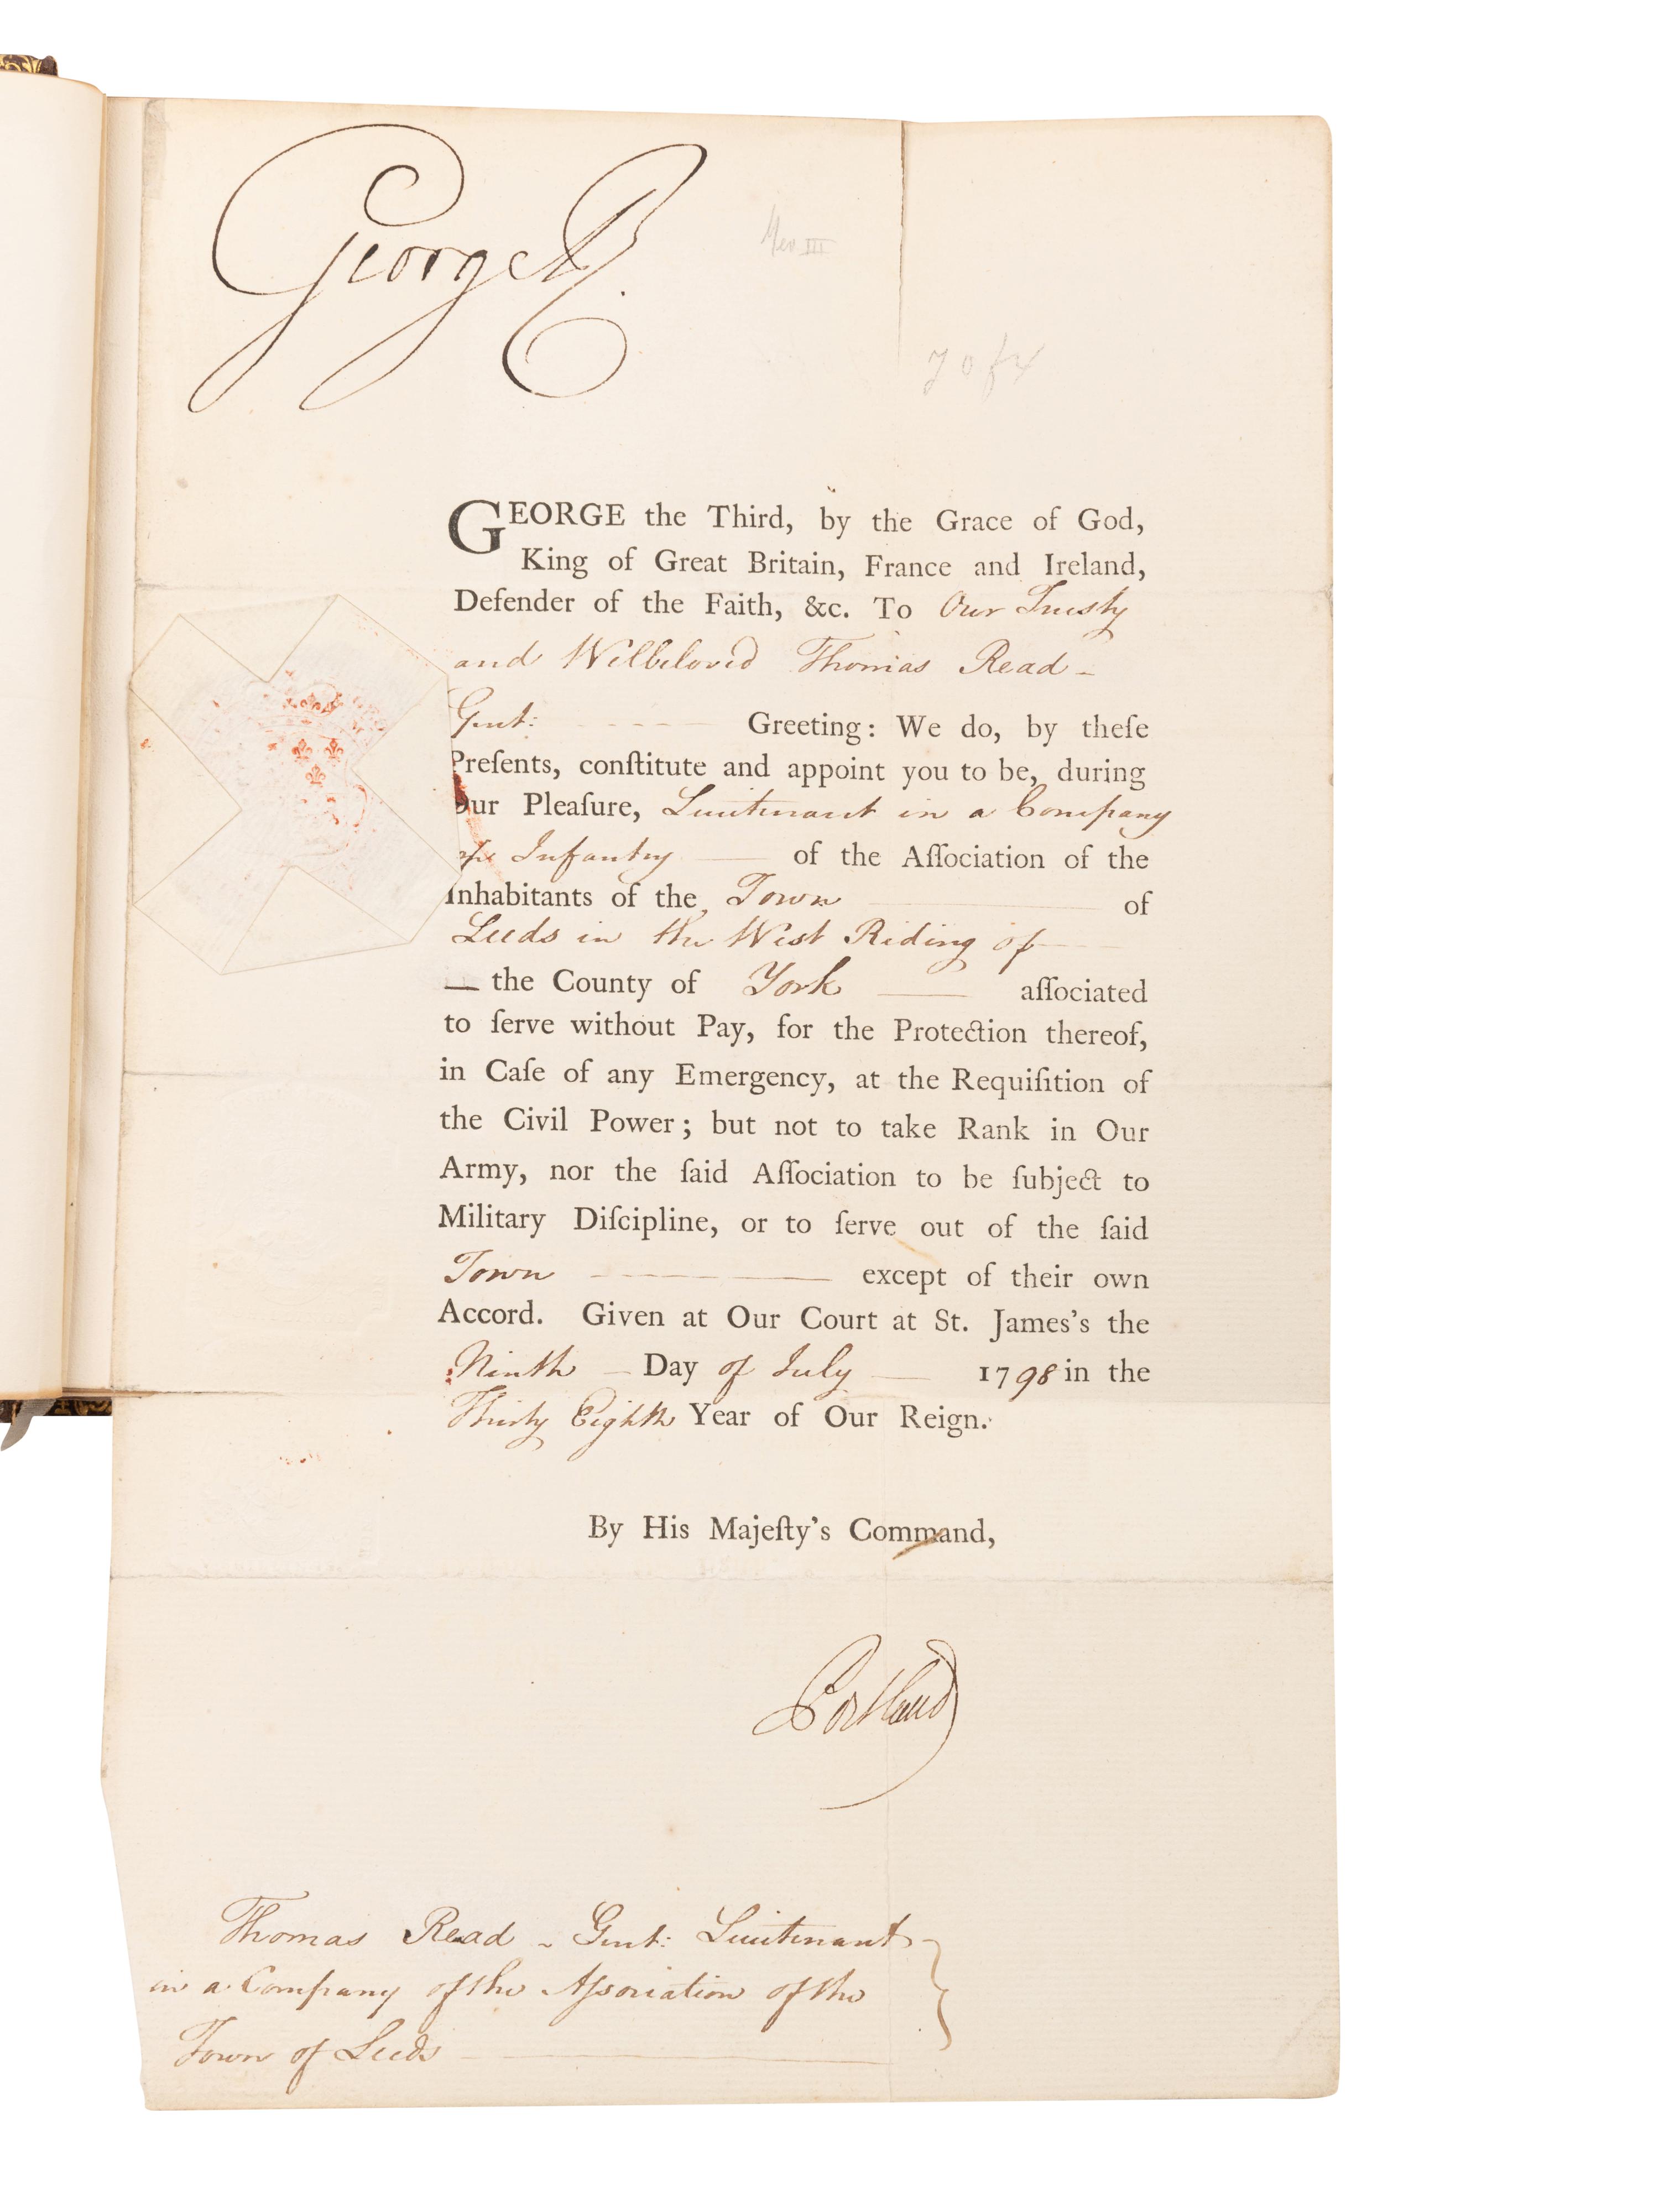 George R.
GEORGE the Third, by the Grace of God,
King of Great Britain, France and Ireland,
Defender of the Faith, &c. To Our Trusty
and Welbeloved Thomas Read -
Gent: Greeting: We do, by theſe
Preſents, conſtitute and appoint you to be, during
Our Pleaſure, Lieutenant in a Company
of Infantry of the Aſſociation of the
Inhabitants of the Town of
Leeds in the West Riding of
— the County of York aſſociated
to ſerve without Pay, for the Protection thereof,
in Caſe of any Emergency, at the Requiſition of
the Civil Power; but not to take Rank in Our
Army, nor the ſaid Aſſociation to be ſubject to
Military Diſcipline, or to ſerve out of the ſaid
Town except of their own
Accord. Given at Our Court at St. James's the
Ninth - Day of July 1798 in the
Thirty Eighth Year of Our Reign.
By His Majeſty's Command,
Portland
Thomas Read - Gent: Lieutenant
in a Company of the Aſsociation of the
Town of Leeds